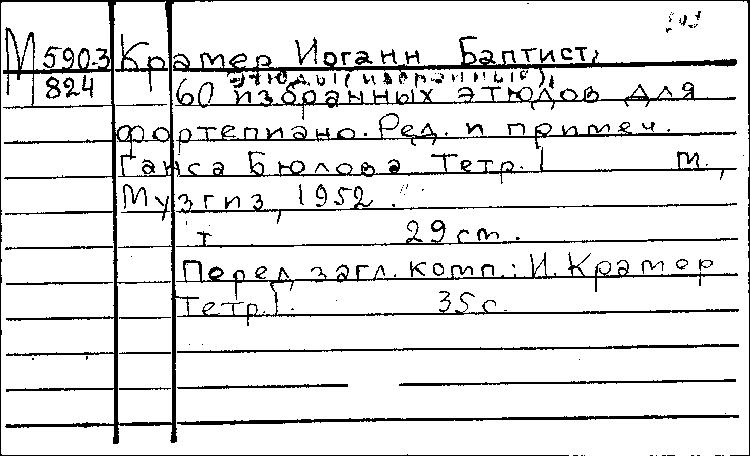 М 5903 Крамер Иоганн Баптист,
824 Этюды (избранные),
60 избранных этюдов для
фортепиано. Ред. и примеч.
Ганса Бюлова Тетр. 1 М.,
Музгиз, 1952.
т 29 cm.
Перед загл. комп.: И. Крамер
Тетр. 1. 35 с.